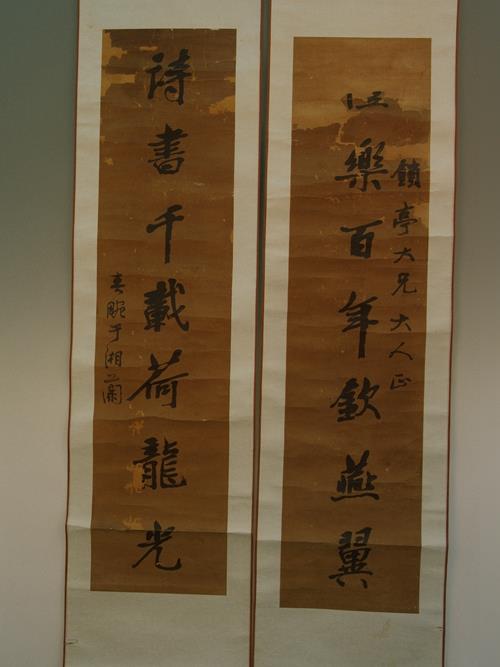 亭大兄大人正
樂百年欽燕翼
詩書千載荷龍光
畹于湘蘭